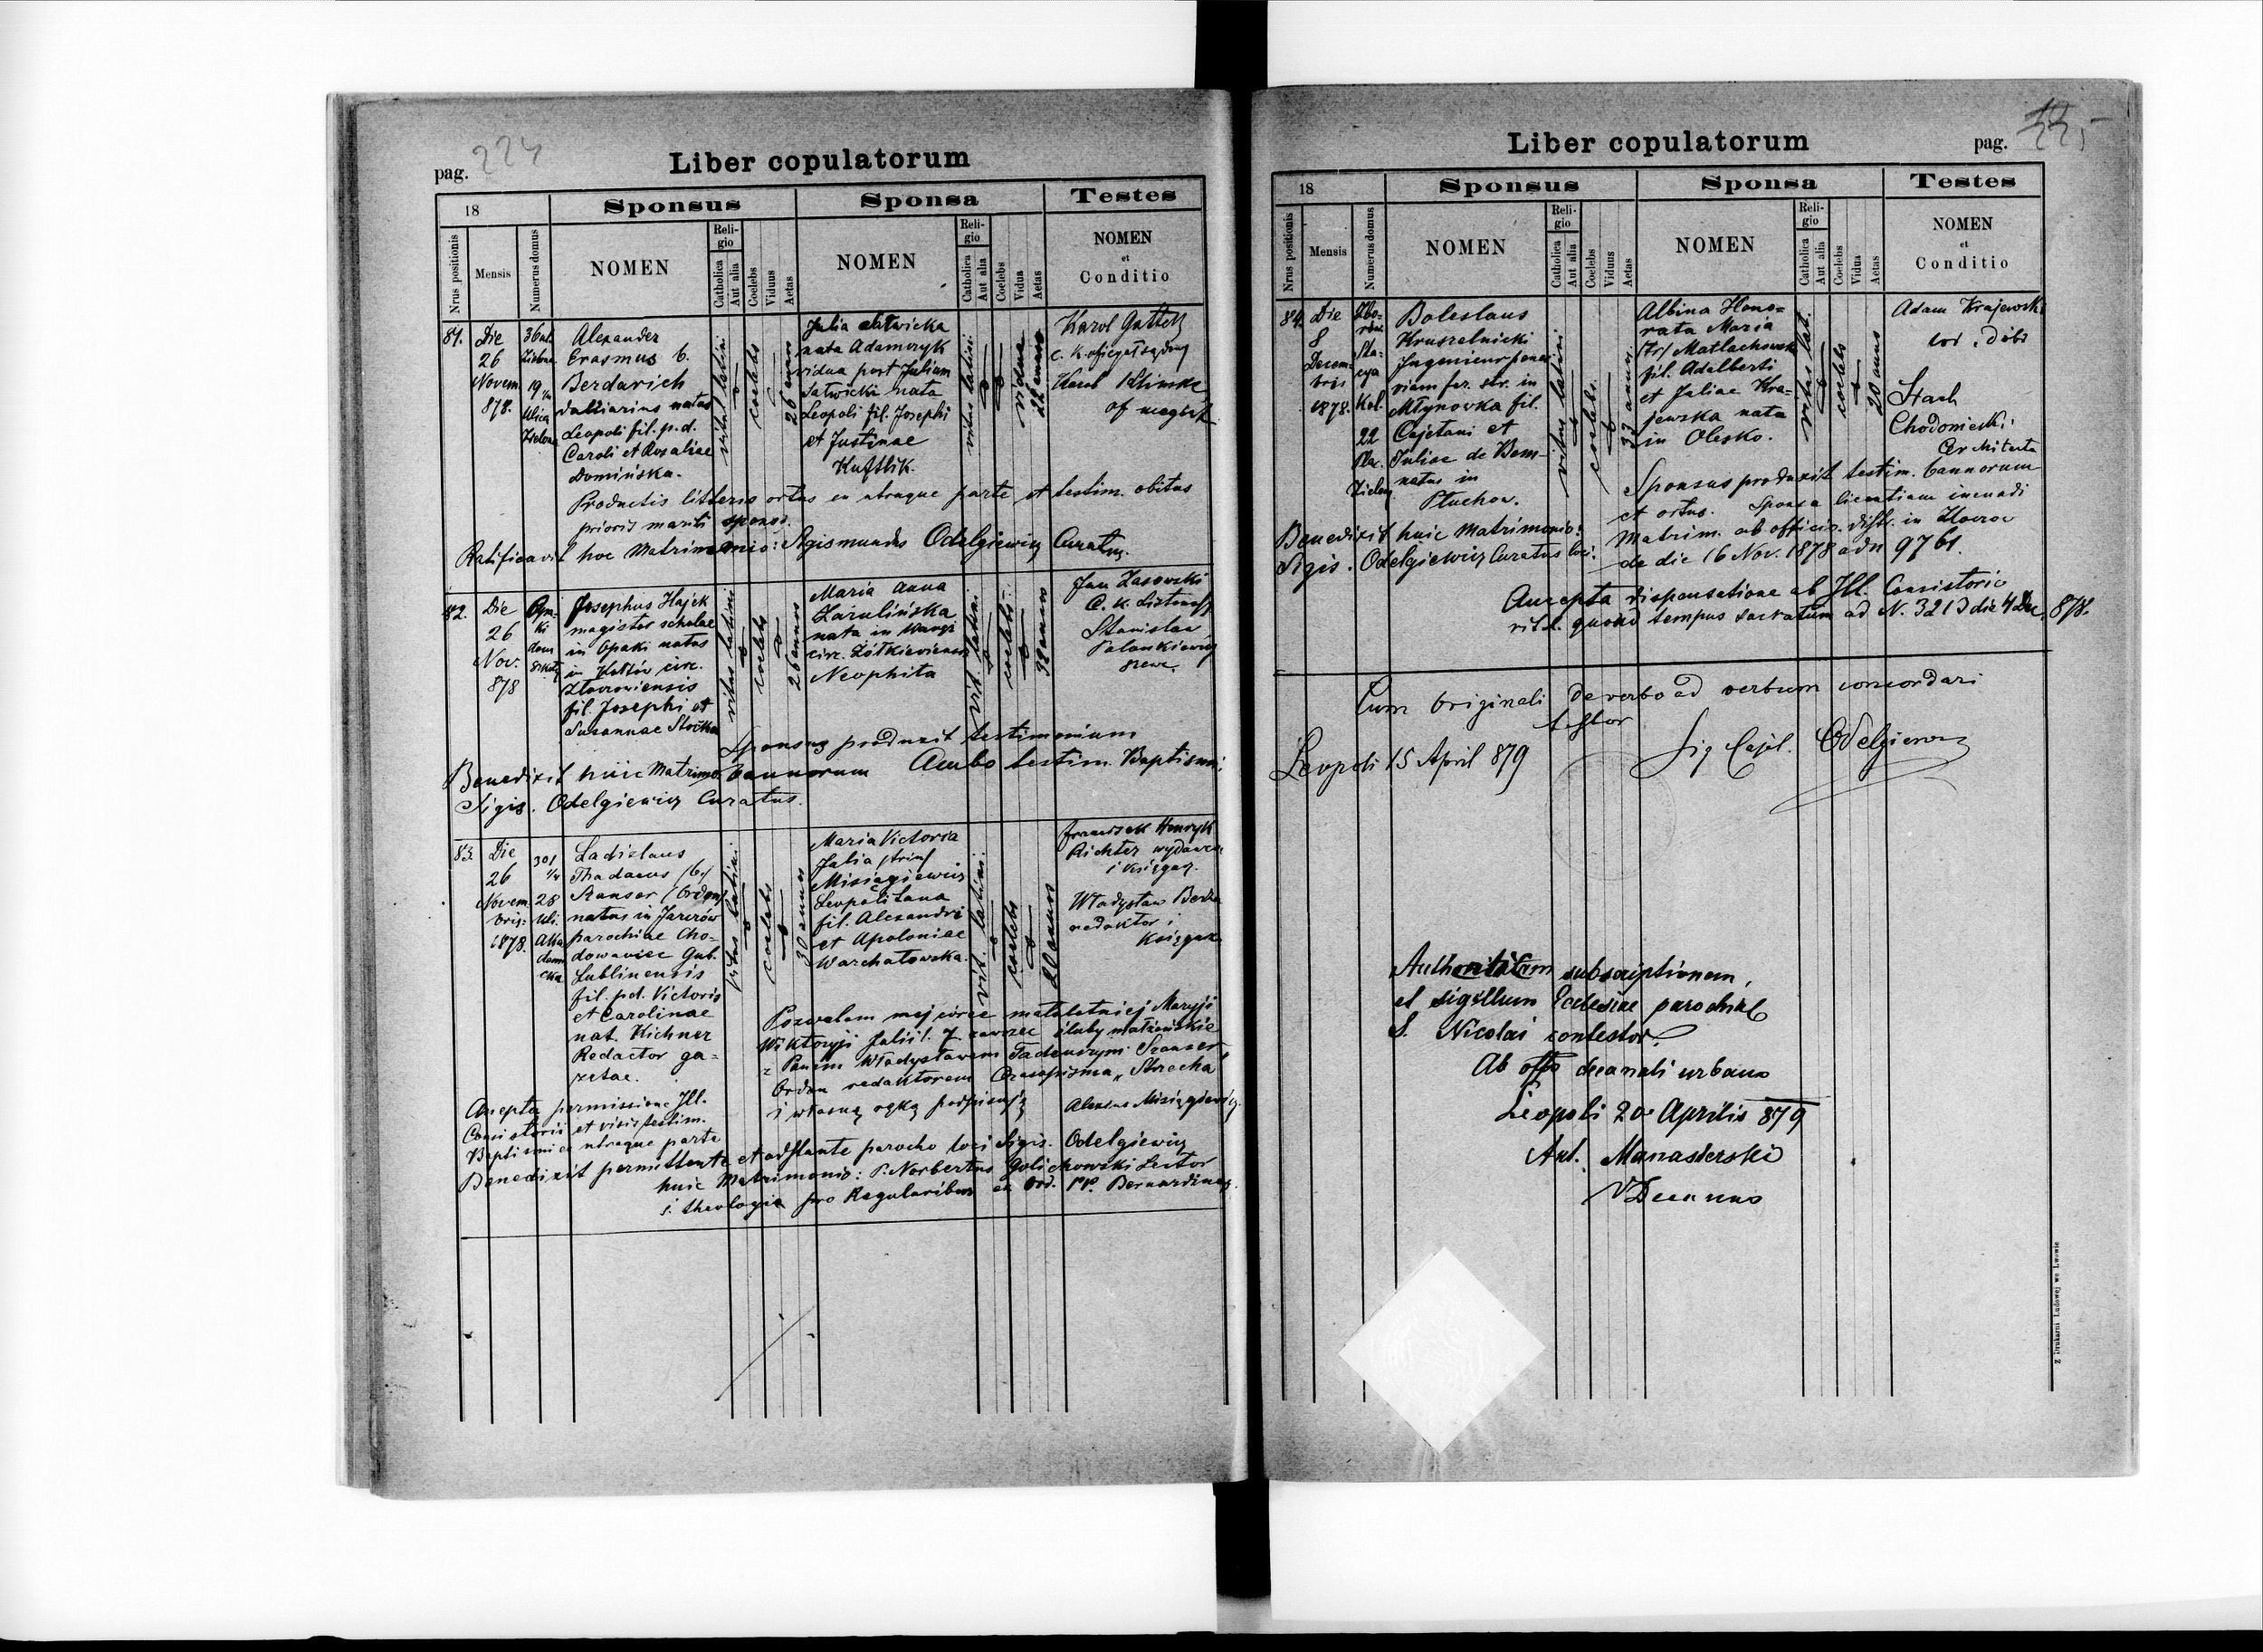 pag. 224
Liber copulatorum
18
Sponsus
Sponsa
Testes
Nrus positionis
Mensis
Numerus domus
NOMEN
Religio
Catholica
Aut alia
Coelebs
Viduus
Aetas
NOMEN
Religio
Catholica
Aut alia
Coelebs
Vidua
Aetas
NOMEN
et
Conditio
81.
Die
26
Novem
878.
19
Ulica
Zielona
Alexander
Erasmus b.
Berdarich
natus
Leopoli fil. p. d.
Caroli et Rosaliae
Domińska.
ritus latini
coelebs
26 annor
Julia
nata Adamczyk
vidua post Julium
nata
Leopoli fil. Josephi
et Justinae
Kuftlik.
ritus latini
vidua
Karol
c. k. oficyał sądowy
Productis litteris ortus ex utraque parte et testim. obitus
prioris mariti sponsae.
Ratificavit hoc Matrimonio: Sigismundus Odelgiewicz Curatus.
82.
Die
26
Nov.
878
Josephus Hajek
magister scholae
in Opaki natus
in circ.
Złoczoviensis
fil. Josephi et
Susannae
ritus latini
coelebs
26 annor
Maria Anna
Zarulińska
nata in
circ. Żółkieviensis
Neophita
rit. latini
coelebs
Jan Zasowski
C. k.
Stanislaw
szewc
Sponsus produxit testimonium
Benedixit huic Matrimo. bannorum Ambo testim. Baptismi
Sigis. Odelgiewicz Curatus.
83.
Die
26
Novem
bris:
1878.
301
1/4
28
Uli.
Aka
demi
cka
Ladislaus
Thadaeus /b./
Szanser /Ordon/
natus in Jarczów
parochiae Cho-
dowaniec Gub.
Lublinensis
fil. p.d. Victoris
et Carolinae
nat. Kichner
Redactor ga-
zetae.
ritus latini
coelebs
30 annor
Maria Victoria
Julia /trin/
Misiągiewicz
Leopolitana
fil. Alexandri
et Apoloniae
Warchałowska.
rit. latini
coelebs
20 annor
Franciszek Henryk
Richter wydawca
i księgarz.
Władysław Bełza
redaktor i
Księgarz
Pozwalam mej córce małoletniej Maryji
Wiktoryji Julii zawrzeć śluby małżeńskie
z Panem Władysławem Tadeuszym Szanser
Ordon redaktorem Czasopisma „Strzecha"
i własną ręką podpisuję Misiągiewicz
Accepta permissione Ill.
Consistorii et visis testim.
Baptismi ex utraque parte
Benedixit permittente et adstante parocho loci Sigis. Odelgiewicz
huic Matrimonio: P. Norbertus Golichowski Lector
s. theologia pro Regularibus ex Ord. PP. Bernardinor.
Liber copulatorum
pag.
18
Sponsus
Sponsa
Testes
Nrus positionis
Mensis
Numerus domus
NOMEN
Religio
Catholica
Aut alia
Coelebs
Viduus
Aetas
NOMEN
Religio
Catholica
Aut alia
Coelebs
Vidua
Aetas
NOMEN
et
Conditio
84.
Die
8
Decem-
bris
1878.
Sta-
cya
Kol.
22
Plac.
Boleslaus
Kruszelnicki
Ingenieur penes
viam fer. str. in
Młynovka fil.
Cajetani et
Juliae de Bem-
natus in
Płuchow.
ritus latini
coelebs
33 annor.
Albina Hono-
rata Maria
/tr/ Matlachowska
fil. Adalberti
et Juliae Kra-
jewska nata
in Olesko.
ritus lat.
coelebs
20 annor
Adam Krajewski
Stach
Chodoniecki
Architecta
Sponsus produxit testim. bannorum
et ortus. Sponsa licentiam ineundi
Matrim. ab officio distr. in Złoczow
de die 16 Nov. 1878 adn 9761.
Benedixit huic Matrimonio:
Sigis. Odelgiewicz Curatus loci.
Accepta dispensatione ab Ill. Consistorio
rit. l. quoad tempus sacratum ad N. 3213 die 4 Dec. 878.
Cum Originali de verbo ad verbum concordari
testor
Leopoli 15 April 879
Sig Cajet. Odelgiewicz
Authenticam subscriptionem,
et sigillum Ecclesiae parochial
S. Nicolai contestor.
Ab offo decanali urbano
Leopoli 20 Aprilis 879
Ant. Manasterski
VDecanus
Z Drukarni Ludowej we Lwowie